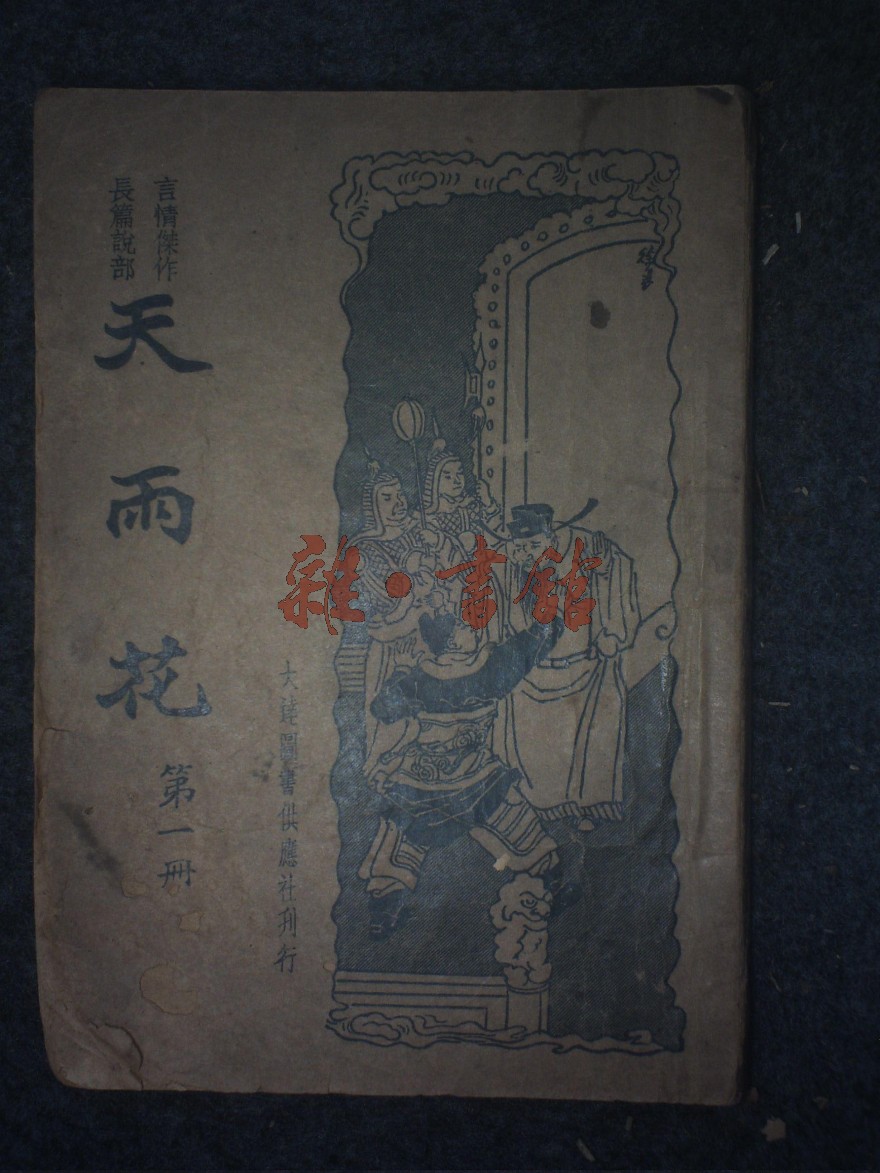 言情傑作
長篇說部
天雨花
第一册
大達圖書供應社刊行
雜·書館